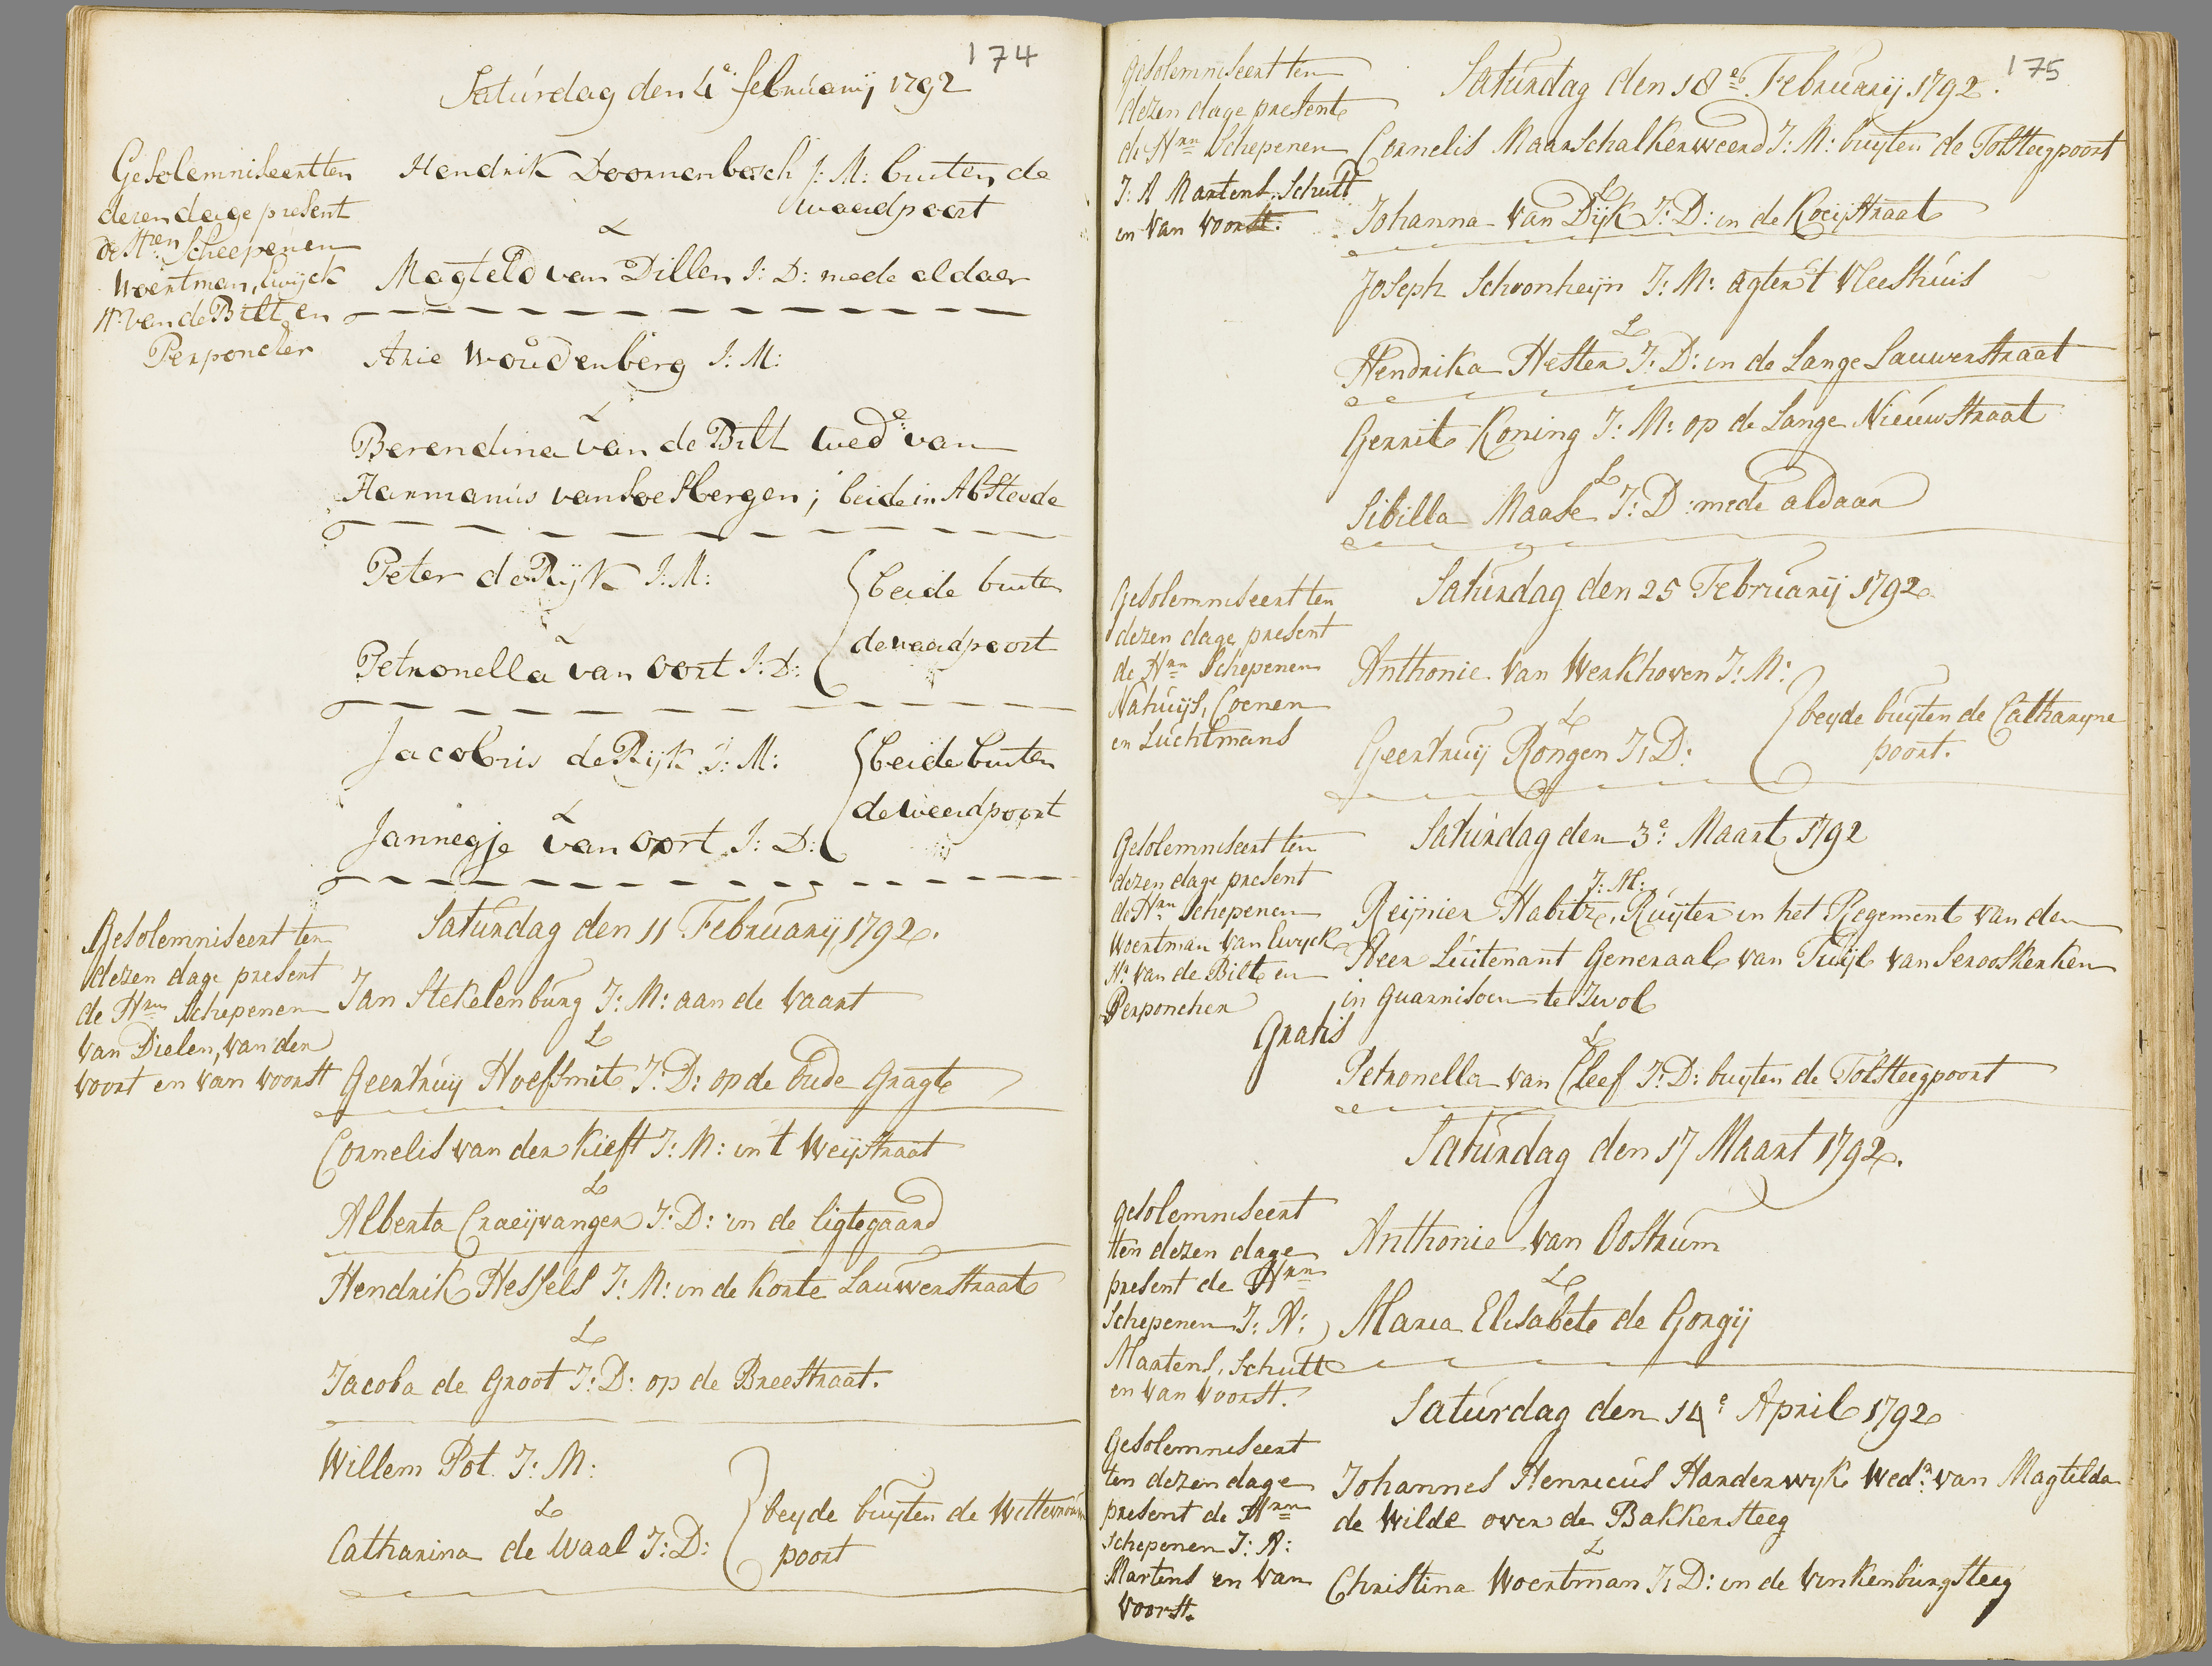 174
Saturdag den 4e februarij 1792
Gesolemniseert ten
dezen dage present
de Hren Scheepenen
Woertman, Ewijck
N: van de Bilt en
Perponcher
Hendrik Doornenbosch J: M: buiten de
waardpoort
&
Magteld van Dillen J: D: mede aldaer
Arie Woudenberg J: M:
&
Berendina van de Bilt wede: van
Harmanus van Soesbergen; beide in Abstede
Peter de Rijk J: M:
&
Petronella van Oort J: D:
beide buiten
de waardpoort
Jacobus de Rijk J: M:
&
Jannegje van Oort J: D:
beide buiten
de weerdpoort
Saturdag den 11 Februarij 1792.
Gesolemniseert ten
dezen dage present
de Hrn Schepenen
van Dielen, van der
voort en van voorst
Jan Stekelenburg J: M: aan de Vaart
&
Geertruij Hoefsmit J: D: op de oude Gragte
Cornelis van der Kieft J: M: in 't Weijstraat
&
Alberta Craeijvanger J: D: in de ligtegaard
Hendrik Hessels J: M: in de korte Lauwerstraat
&
Jacoba de Groot J: D: op de Breestraat.
Willem Pot J: M:
&
Catharina de Waal J: D:
beyde buyten de Wittevrouw
poort
175
Saturdag den 18e Februarij 1792.
Gesolemniseert ten
dezen dage present
de Hrn Schepenen
J: A Martens, Schutt
en van voorst.
Cornelis Maarschalkerweerd J: M: buyten de Tolsteegpoort
&
Johanna van Dijk J: D: in de Koeijstraat
Joseph Schoonheijn J: M: agter 't Vleeshuis
&
Hendrika Hester J: D: in de Lange Lauwerstraat
Gerrit Koning J: M: op de Lange Nieuwstraat
&
Sibilla Maase J: D: mede aldaar
Saturdag den 25 Februarij 1792
Gesolemniseert ten
dezen dage present
de Hrn Schepenen
Nahuijs, Coenen
en Luchtmans
Anthonie van Werkhoven J: M:
&
Geertruij Rongen J: D:
beyde buyten de Catharyne
poort.
Saturdag den 3e: Maart 1792
Gesolemniseert ten
dezen dage present
de Hrn Schepenen
Woertman van Ewyck
N: van de Bilt en
Perponcher
Gratis
J: M:
Reijnier Habitz, Ruijter in het Regement van den
Heer Luitenant Generaal van Tuijl van Serooskerken
in guarnisoen te Zwol
&
Petronella van Cleef J: D: buyten de Tolsteegpoort
Saturdag den 17 Maart 1792.
gesolemniseert
ten dezen dage
present de Hrn
Schepenen J: A:
Martens, Schutt
en van voorst.
Anthonie van Oostrum
&
Maria Elisabete de Gorgij
Saturdag den 14e April 1792
Gesolemniseert
ten dezen dage
present de Hrn
Schepenen J: A:
Martens en van
voorst.
Johannes Henricus Harderwyk Wedr: van Magtilda
de Wilde over de Bakkersteeg
&
Christina Woertman J: D: in de Vinkenburgsteeg